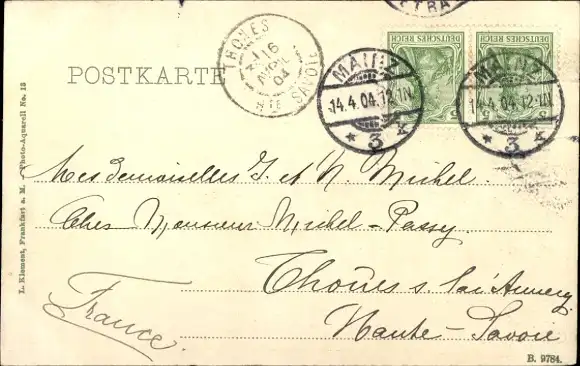 THONES
16
AVRIL
04
HTE SAVOIE
POSTKARTE
DEUTSCHES REICH
DEUTSCHES REICH
MAINZ
14.4.04.12-1N.
* 3 K
MAINZ
14.4.04.12-1N.
* 3 K
Mesdemoiselles J. et N. Michel.
Ches Monsieur Michel-Passy.
Thônes s. lai Annecy
France.
Haute-Savoie
L. Klement, Frankfurt a. M. Photo-Aquarell No. 13
B. 9784.